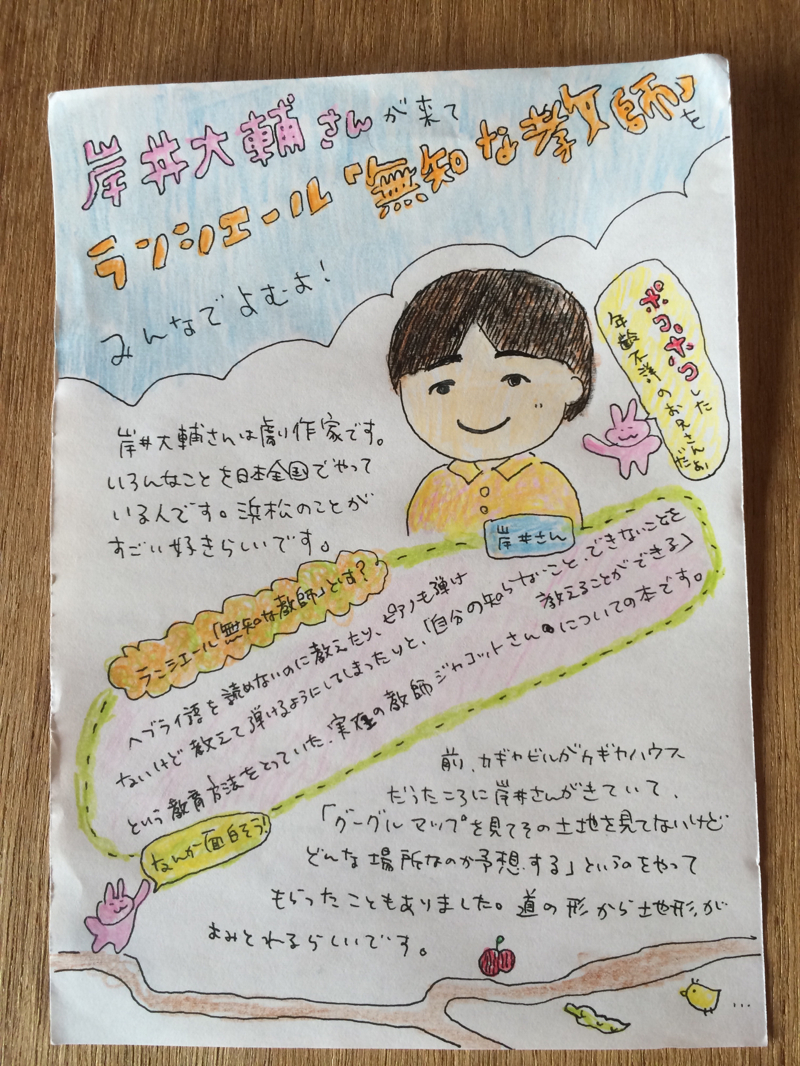 岸井大輔さんが来て
ランシエール「無知な教師」を
みんなでよむよ!
ポコポコした
年齢不詳のお兄さんだよ
岸井大輔さんは劇作家です。
いろんなことを日本全国でやって
いるんです。浜松のことが
すごい好きらしいです。
岸井さん
ランシエール「無知な教師」とは?
ヘブライ語を読めないのに教えたり、ピアノも弾け
ないけど教えて弾けるようにしてしまったりと、「自分の知らないこと、できないことを
教えることができる」
という教育方法をとっていた、実在の教師ジャコットさんについての本です。
なんか面白そう!
前、カギヤビルがカギヤハウス
だったころに岸井さんがきていて、
「グーグルマップを見てその土地を見てないけど
どんな場所なのか予想する」というのをやって
もらったこともありました。道の形から地形が
よみとれるらしいです。
...